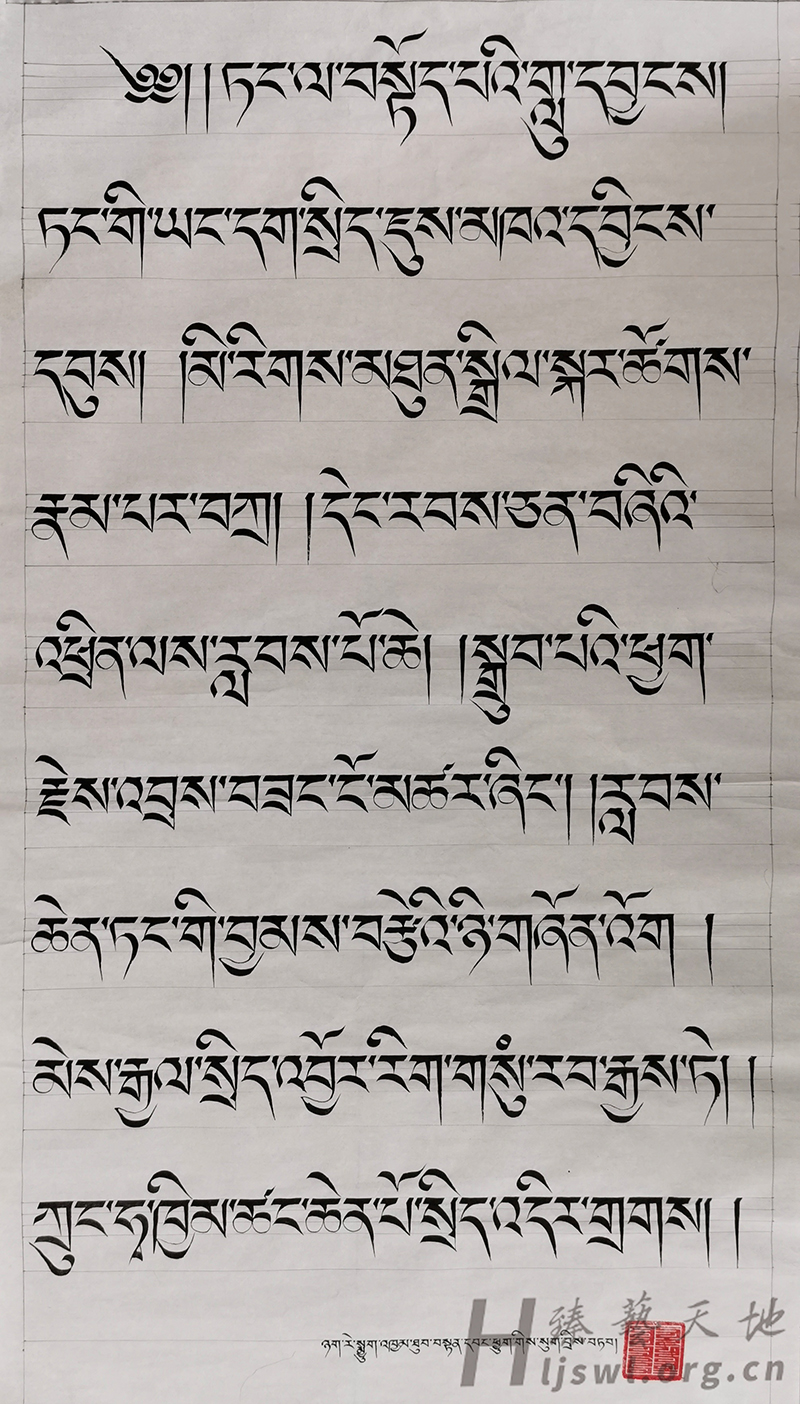 ༄༅། །ཏང་ལ་བསྟོད་པའི་གླུ་དབྱངས།
ཏང་གི་ཡང་དག་སྲིད་ཇུས་མཁའ་དབྱིངས་
དབུས། །མི་རིགས་མཐུན་སྒྲིལ་སྐར་ཚོགས་
རྣམ་པར་བཀྲ། །དེང་རབས་ཅན་བཞིའི་
འཕྲིན་ལས་རླབས་པོ་ཆེ། །སྒྲུབ་པའི་ཕྱག་
རྗེས་འབྲས་བཟང་ངོ་མཚར་ཞིང་། །རླབས་
ཆེན་ཏང་གི་བྱམས་བརྩེའི་ཉི་གཞོན་འོག །
མེས་རྒྱལ་སྲིད་འབྱོར་རིག་གསུཾ་རབ་རྒྱས་ཏེ། །
ཀྲུང་ཧྭ་ཁྱིམ་ཚང་ཆེན་པོ་སྲིད་འདིར་གྲགས། །
ཉག་རེ་སྨྱུག་འཁྱམ་ཐུབ་བསྟན་དབང་ཕྱུག་གིས་སུག་བྲིས་བཏབ།
臻藝天地
Hljswl.org.cn